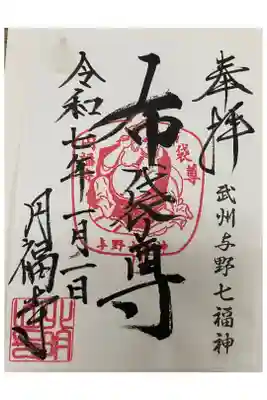 奉拝
武州与野七福神
布袋尊
袋尊
与野
神
令和七年一月二日
円福寺